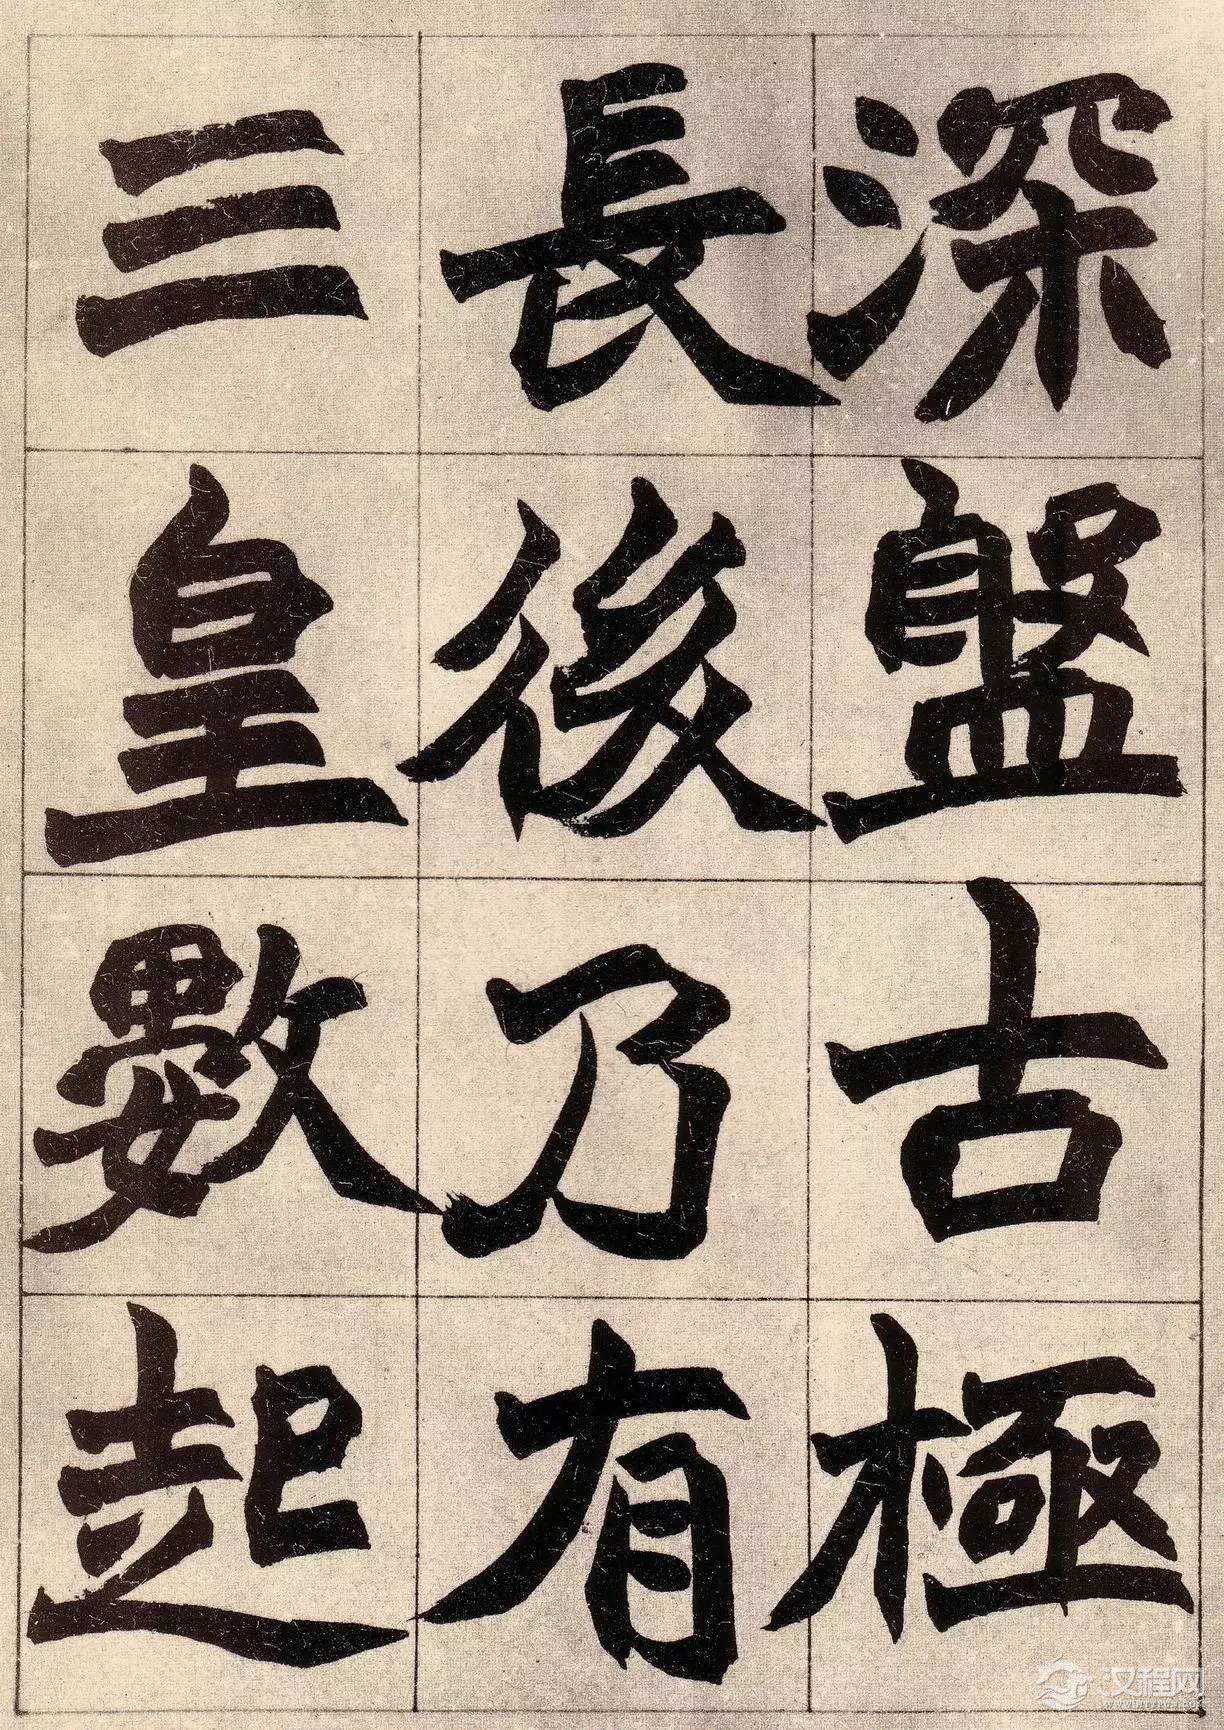 深盤古極
長後乃有
三皇數起
汉程网